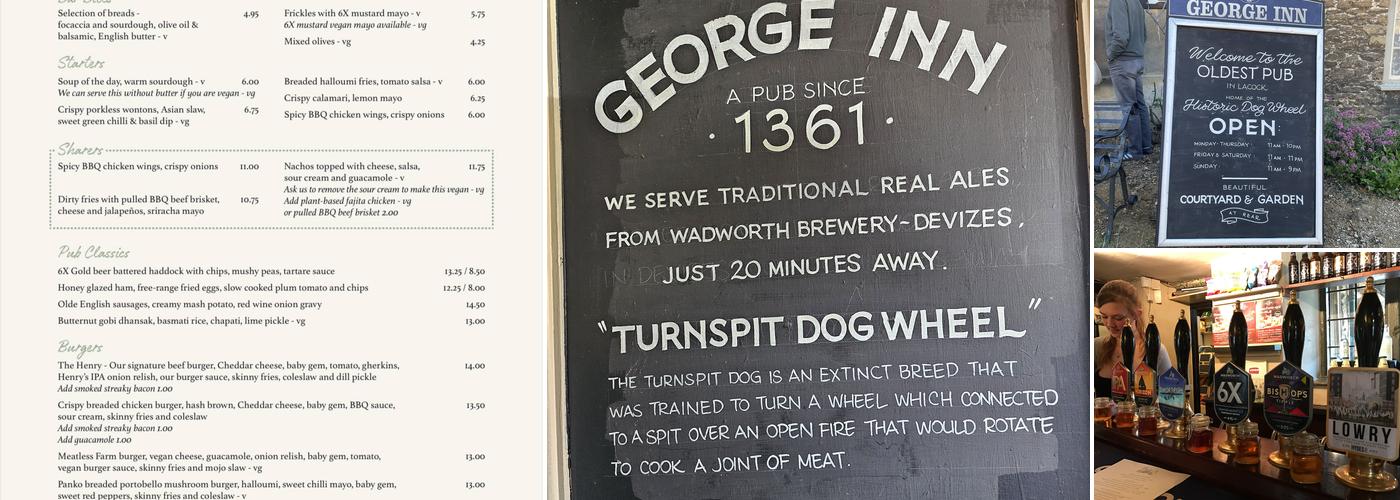 Selection of breads - 4.95
focaccia and sourdough, olive oil &
balsamic, English butter - v
Frickles with 6X mustard mayo - v 5.75
6X mustard vegan mayo available - vg
Mixed olives - vg 4.25
Starters
Soup of the day, warm sourdough - v 6.00
We can serve this without butter if you are vegan - vg
Crispy porkless wontons, Asian slaw, 6.75
sweet green chilli & basil dip - vg
Breaded halloumi fries, tomato salsa - v 6.00
Crispy calamari, lemon mayo 6.25
Spicy BBQ chicken wings, crispy onions 6.00
Sharers
Spicy BBQ chicken wings, crispy onions 11.00
Dirty fries with pulled BBQ beef brisket, 10.75
cheese and jalapeños, sriracha mayo
Nachos topped with cheese, salsa, 11.75
sour cream and guacamole - v
Ask us to remove the sour cream to make this vegan - vg
Add plant-based fajita chicken - vg
or pulled BBQ beef brisket 2.00
Pub Classics
6X Gold beer battered haddock with chips, mushy peas, tartare sauce 13.25 / 8.50
Honey glazed ham, free-range fried eggs, slow cooked plum tomato and chips 12.25 / 8.00
Olde English sausages, creamy mash potato, red wine onion gravy 14.50
Butternut gobi dhansak, basmati rice, chapati, lime pickle - vg 13.00
Burgers
The Henry - Our signature beef burger, Cheddar cheese, baby gem, tomato, gherkins, 14.00
Henry's IPA onion relish, our burger sauce, skinny fries, coleslaw and dill pickle
Add smoked streaky bacon 1.00
Crispy breaded chicken burger, hash brown, Cheddar cheese, baby gem, BBQ sauce, 13.50
sour cream, skinny fries and coleslaw
Add smoked streaky bacon 1.00
Add guacamole 1.00
Meatless Farm burger, vegan cheese, guacamole, onion relish, baby gem, tomato, 13.00
vegan burger sauce, skinny fries and mojo slaw - vg
Panko breaded portobello mushroom burger, halloumi, sweet chilli mayo, baby gem, 13.00
sweet red peppers, skinny fries and coleslaw - v
GEORGE INN
A PUB SINCE
· 1361 ·
WE SERVE TRADITIONAL REAL ALES
FROM WADWORTH BREWERY~DEVIZES,
JUST 20 MINUTES AWAY.
"TURNSPIT DOG WHEEL"
THE TURNSPIT DOG IS AN EXTINCT BREED THAT
WAS TRAINED TO TURN A WHEEL WHICH CONNECTED
TO A SPIT OVER AN OPEN FIRE THAT WOULD ROTATE
TO COOK A JOINT OF MEAT.
GEORGE INN
Welcome to the
OLDEST PUB
IN LACOCK,
HOME OF THE
Historic Dog Wheel
OPEN:
MONDAY-THURSDAY: 11AM-10PM
FRIDAY & SATURDAY: 11AM-11PM
SUNDAY: 11AM-9PM
BEAUTIFUL
COURTYARD & GARDEN
AT REAR
6X
BISHOPS
LOWRY